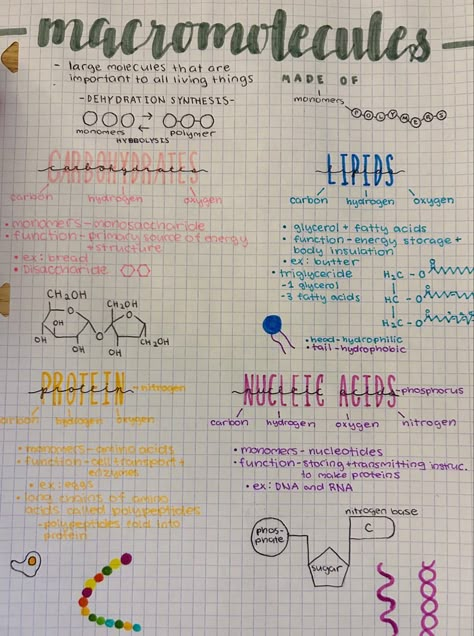 macromolecules
- large molecules that are
important to all living things
MADE OF
monomers
POLYMERS
- DEHYDRATION SYNTHESIS -
monomers
polymer
HYDROLYSIS
CARBOHYDRATES
carbohydrates
carbon hydrogen oxygen
• monomers - monosaccharide
• function - primary source of energy
+ structure
• ex: bread
• Disaccharide
CH2OH
CH2OH
O
O
OH
OH
O
OH
OH
OH
CH2OH
LIPIDS
lipids
carbon hydrogen oxygen
• glycerol + fatty acids
• function - energy storage +
body insulation
• ex: butter
• triglyceride
- 1 glycerol
- 3 fatty acids
H2C - O
HC - O
H2C - O
• head - hydrophilic
• tail - hydrophobic
PROTEIN
protein
nitrogen
carbon hydrogen oxygen
• monomers - amino acids
• function - cell transport +
enzymes
• ex: eggs
• long chains of amino
acids called polypeptides
- polypeptides fold into
protein
NUCLEIC ACIDS
nucleic acids
phosphorus
carbon hydrogen oxygen nitrogen
• monomers - nucleotides
• function - storing + transmitting instruc.
to make proteins
• ex: DNA and RNA
phos-
phate
sugar
nitrogen base
C